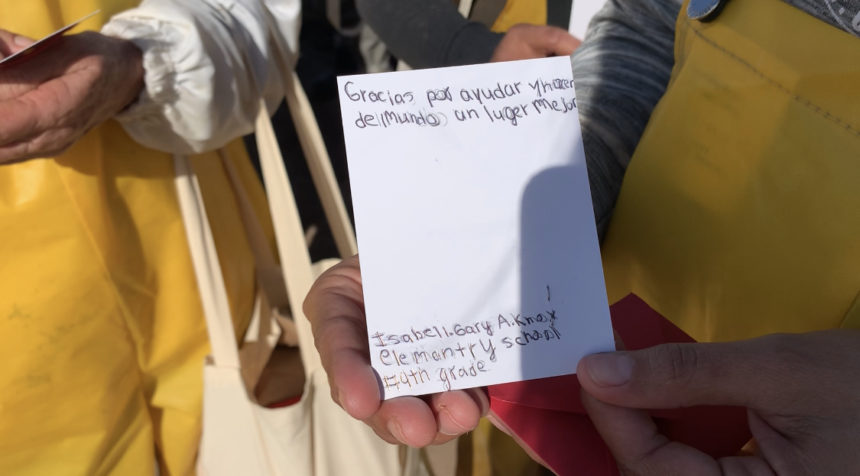 Gracias por ayudar y hacer
del Mundo, un luger Mejor
Isabell. Gary A. Knox
elemantry school
4th grade